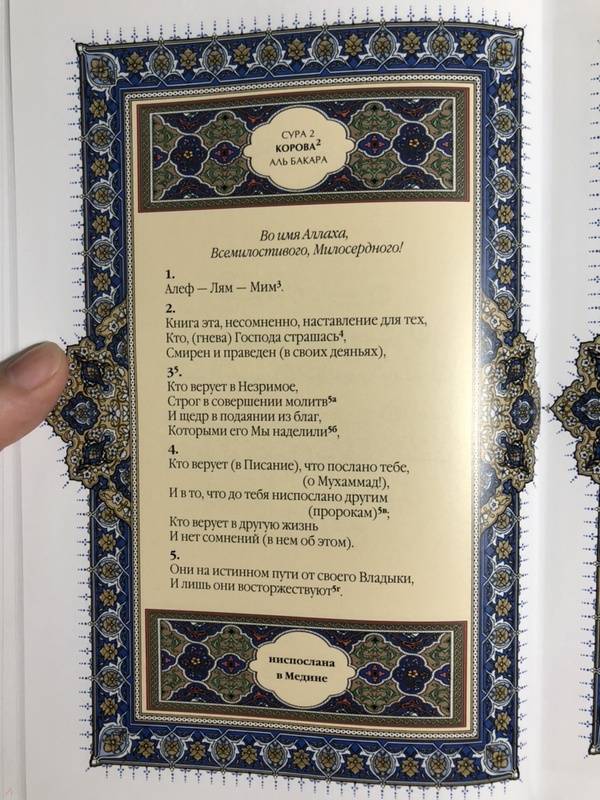 СУРА 2
КОРОВА²
АЛЬ БАКАРА
Во имя Аллаха,
Всемилостивого, Милосердного!
1.
Алеф — Лям — Мим³.
2.
Книга эта, несомненно, наставление для тех,
Кто, (гнева) Господа страшась⁴,
Смирен и праведен (в своих деяньях),
3⁵.
Кто верует в Незримое,
Строг в совершении молитв⁵ᵃ
И щедр в подаянии из благ,
Которыми его Мы наделили⁵ᵇ,
4.
Кто верует (в Писание), что послано тебе,
(о Мухаммад!),
И в то, что до тебя ниспослано другим
(пророкам)⁵ᵛ;
Кто верует в другую жизнь
И нет сомнений (в нем об этом).
5.
Они на истинном пути от своего Владыки,
И лишь они восторжествуют⁵ʳ.
ниспослана
в Медине